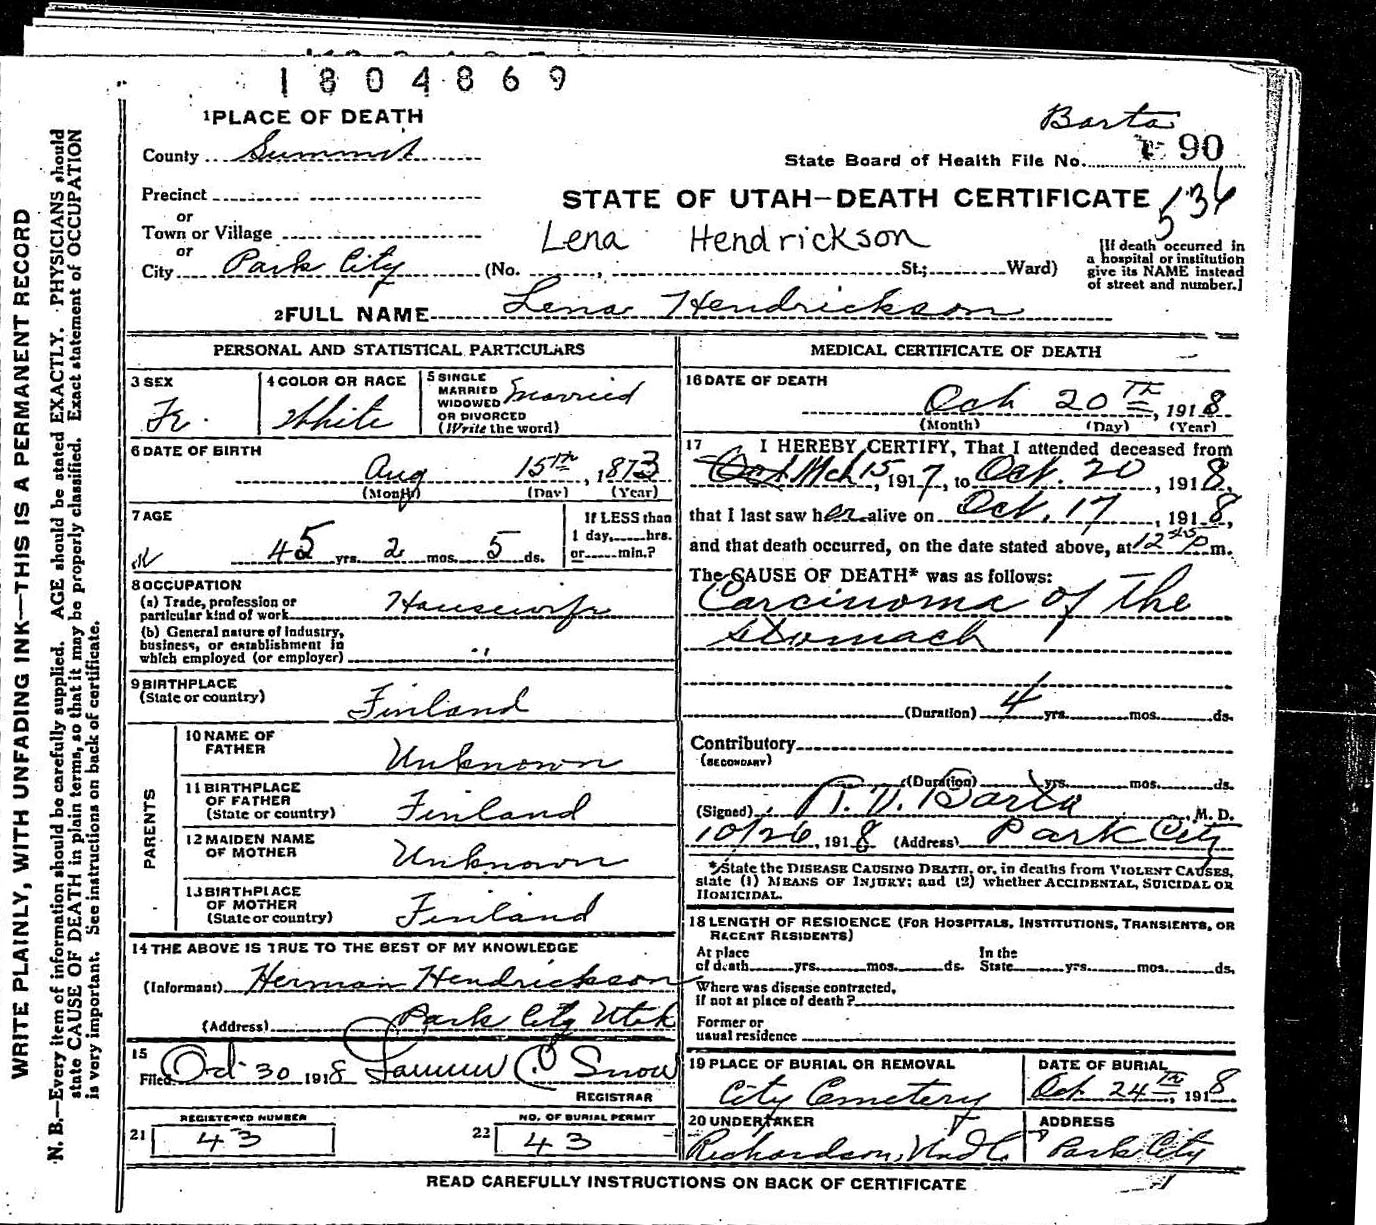 1804869
1 PLACE OF DEATH
Barta
County Summit
State Board of Health File No. 90
Precinct
STATE OF UTAH—DEATH CERTIFICATE
536
or
Town or Village
Lena Hendrickson
or
City Park City (No. , St.; Ward)
[If death occurred in
a hospital or institution
give its NAME instead
of street and number.]
2 FULL NAME Lena Hendrickson
PERSONAL AND STATISTICAL PARTICULARS
3 SEX
Fe.
4 COLOR OR RACE
White
5 SINGLE
MARRIED
WIDOWED
OR DIVORCED
(Write the word)
Married
6 DATE OF BIRTH
Aug 15th, 1873
(Month) (Day) (Year)
7 AGE
45 yrs. 2 mos. 5 ds.
If LESS than
1 day, hrs.
or min.?
8 OCCUPATION
(a) Trade, profession or
particular kind of work Housewife
(b) General nature of industry,
business, or establishment in
which employed (or employer)
9 BIRTHPLACE
(State or country)
Finland
PARENTS
10 NAME OF
FATHER
Unknown
11 BIRTHPLACE
OF FATHER
(State or country)
Finland
12 MAIDEN NAME
OF MOTHER
Unknown
13 BIRTHPLACE
OF MOTHER
(State or country)
Finland
14 THE ABOVE IS TRUE TO THE BEST OF MY KNOWLEDGE
(Informant) Herman Hendrickson
(Address) Park City Utah
15
Filed Oct 30 1918 C. Snow
REGISTRAR
REGISTERED NUMBER
21 43
NO. OF BURIAL PERMIT
22 43
MEDICAL CERTIFICATE OF DEATH
16 DATE OF DEATH
Oct 20TH, 1918
(Month) (Day) (Year)
17 I HEREBY CERTIFY, That I attended deceased from
Oct Mch 15, 1917, to Oct. 20, 1918,
that I last saw her alive on Oct. 17, 1918,
and that death occurred, on the date stated above, at 12 m.
The CAUSE OF DEATH* was as follows:
Carcinoma of the
stomach
(Duration) 4 yrs. mos. ds.
Contributory
(SECONDARY)
(Duration) yrs. mos. ds.
(Signed) Barta, M. D.
10/26, 1918 (Address) Park City
*State the DISEASE CAUSING DEATH, or, in deaths from VIOLENT CAUSES,
state (1) MEANS OF INJURY; and (2) whether ACCIDENTAL, SUICIDAL OR
HOMICIDAL.
18 LENGTH OF RESIDENCE (FOR HOSPITALS, INSTITUTIONS, TRANSIENTS, OR
RECENT RESIDENTS)
At place In the
of death yrs. mos. ds. State yrs. mos. ds.
Where was disease contracted,
if not at place of death?
Former or
usual residence
19 PLACE OF BURIAL OR REMOVAL
City Cemetery
DATE OF BURIAL
Oct 24TH, 1918
20 UNDERTAKER
Richardson Und Co
ADDRESS
Park City
READ CAREFULLY INSTRUCTIONS ON BACK OF CERTIFICATE
WRITE PLAINLY, WITH UNFADING INK—THIS IS A PERMANENT RECORD
N. B.—Every item of information should be carefully supplied. AGE should be stated EXACTLY. PHYSICIANS should
state CAUSE OF DEATH in plain terms, so that it may be properly classified. Exact statement of OCCUPATION
is very important. See instructions on back of certificate.